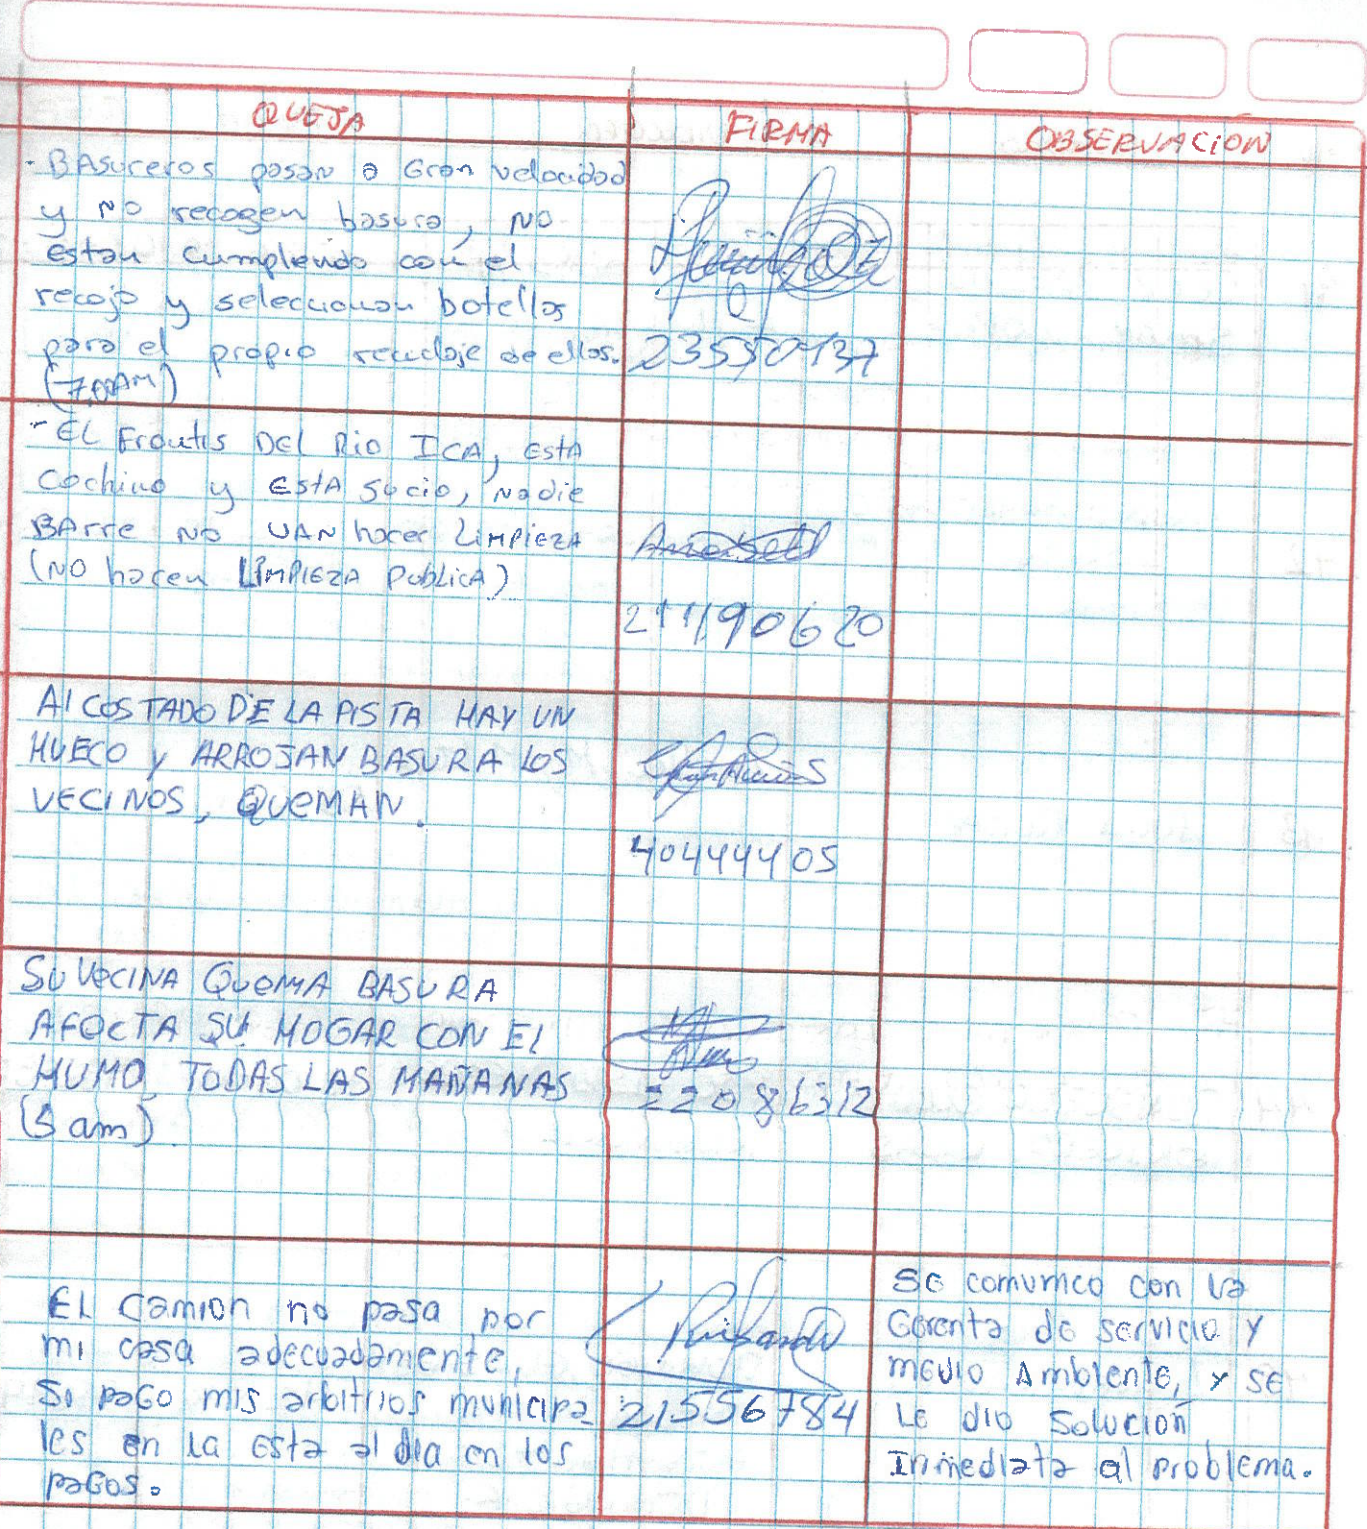 QUEJA
FIRMA
OBSERVACION
- BASureros pasan a Gran velocidad
y NO recogen basura, NO
estan Cumpliendo con el
recojo y seleccionan botellas
para el propio reciclaje de ellos.
(7:00AM)
23550137
- EL Frontis DEL Rio ICA, EstA
Cochino y EstA Sucio, Nadie
BArre NO VAN hacer LiMPiEZA
(NO hacen LIMPIEZA PUblicA)
211190620
Al COSTADO DE LA PISTA HAY UN
HUECO Y ARROJAN BASURA LOS
VECINOS, QUEMAN.
40444405
SU VECINA QUEMA BASURA
AFECTA SU HOGAR CON EL
HUMO TODAS LAS MAÑANAS
(5 am)
22086312
EL Camion no pasa por
mi casa adecuadamente,
Si paGo mis arbitrios municipa
les en la Esta al dia en los
paGos.
21556784
SE comunico con la
Gerenta de servicio Y
medio Ambiente, y SE
LE dio Solucion
Inmediata al problema.